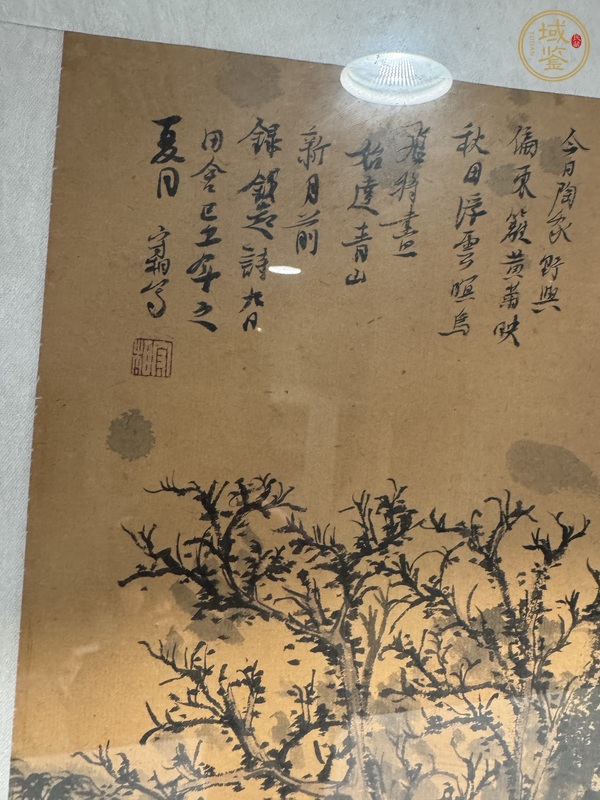 今日陶家野興
偏東籬黃菊映
秋田浮雲暝鳥
飛將盡
始達青山
新月前
錄錢起詩九日
田舍己丑年之
夏日
寫
域鉴